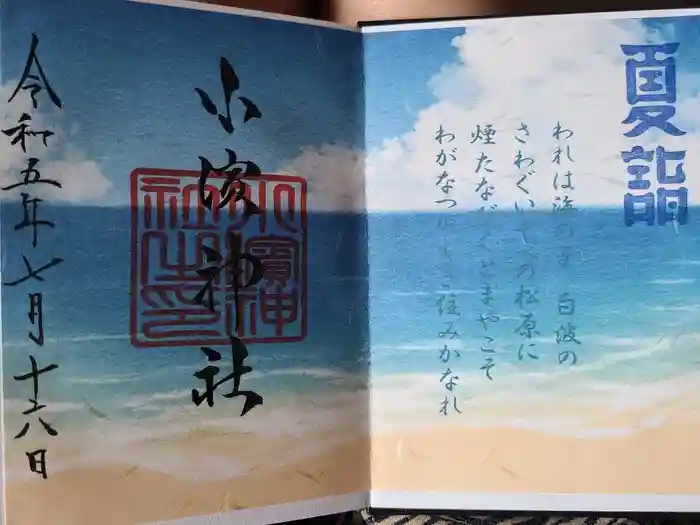 夏詣
われは海の子 白波の
さわぐいそべの松原に
煙たなびくとまやこそ
わがなつかしき住みかなれ
小濱神社
小濱神社之印
令和五年七月十六日